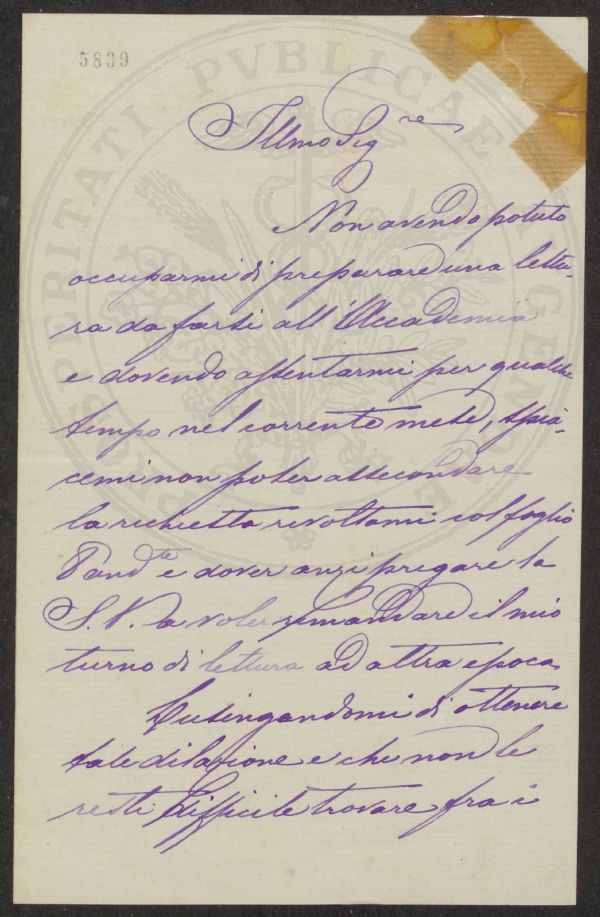 5839
PROSPERITATI PVBLICAE AVGENDAE
Illmo Sigre
Non avendo potuto
occuparmi di preparare una lettu-
ra da farsi all'Accademia
e dovendo assentarmi per qualche
tempo nel corrente mese, spia-
cemi non poter assecondare
la richiesta rivoltami col foglio
e dover anzi pregare la
S.V. a voler rimandare il mio
turno di lettura ad altra epoca
Lusingandomi di ottenere
tale dilazione e che non le
resti difficile trovare fra i